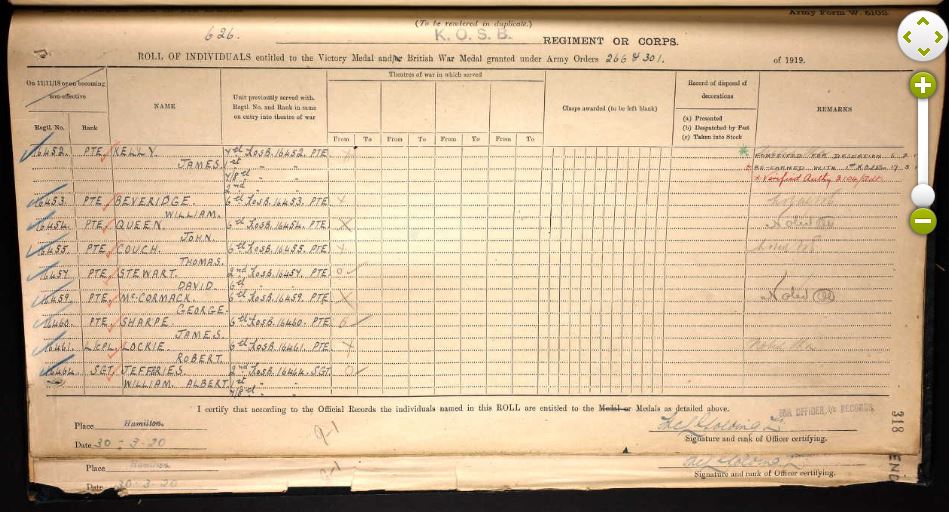 Army Form W. 5102.
(To be rendered in duplicate.)
626. K. O. S. B. REGIMENT OR CORPS.
ROLL OF INDIVIDUALS entitled to the Victory Medal and/or British War Medal granted under Army Orders 266 & 301. of 1919.
On 11/11/18 or on becoming non-effective
Regtl. No.
Rank
NAME
Unit previously served with, Regtl. No. and Rank in same on entry into theatre of war
Theatres of war in which served
From To From To From To From To
Clasps awarded (to be left blank)
Record of disposal of decorations
(a) Presented
(b) Despatched by Post
(c) Taken into Stock
REMARKS
16452. PTE KELLY 7th KOSB. 16452. PTE
FORFEITED FOR DESERTION
JAMES. 1st " "
RE-EARNED WITH
7/8th " "
Verified Auth
2nd " "
16453 PTE BEVERIDGE. 6th KOSB. 16453. PTE X
WILLIAM.
16454 PTE QUEEN. 6th KOSB. 16454. PTE X Noted
JOHN.
16455. PTE COUCH. 6th KOSB. 16455. PTE X
THOMAS.
16457 PTE STEWART. 2nd KOSB. 16457. PTE O
DAVID 6th " "
16459. PTE McCORMACK. 6th KOSB. 16459. PTE X Noted
GEORGE.
16460. PTE SHARPE. 6th KOSB. 16460. PTE
JAMES.
16461. L/CPL LOCKIE. 6th KOSB. 16461. PTE X
ROBERT.
16464 SGT JEFFRIES. 2nd KOSB. 16464. SGT O
WILLIAM ALBERT 1st " "
7/8th " "
I certify that according to the Official Records the individuals named in this ROLL are entitled to the Medal or Medals as detailed above.
FOR OFFICER, i/c RECORDS.
Place Hamilton.
Date 30-3-20
9-1
Signature and rank of Officer certifying.
318
END
Place Hamilton
Date 30-3-20
Signature and rank of Officer certifying.